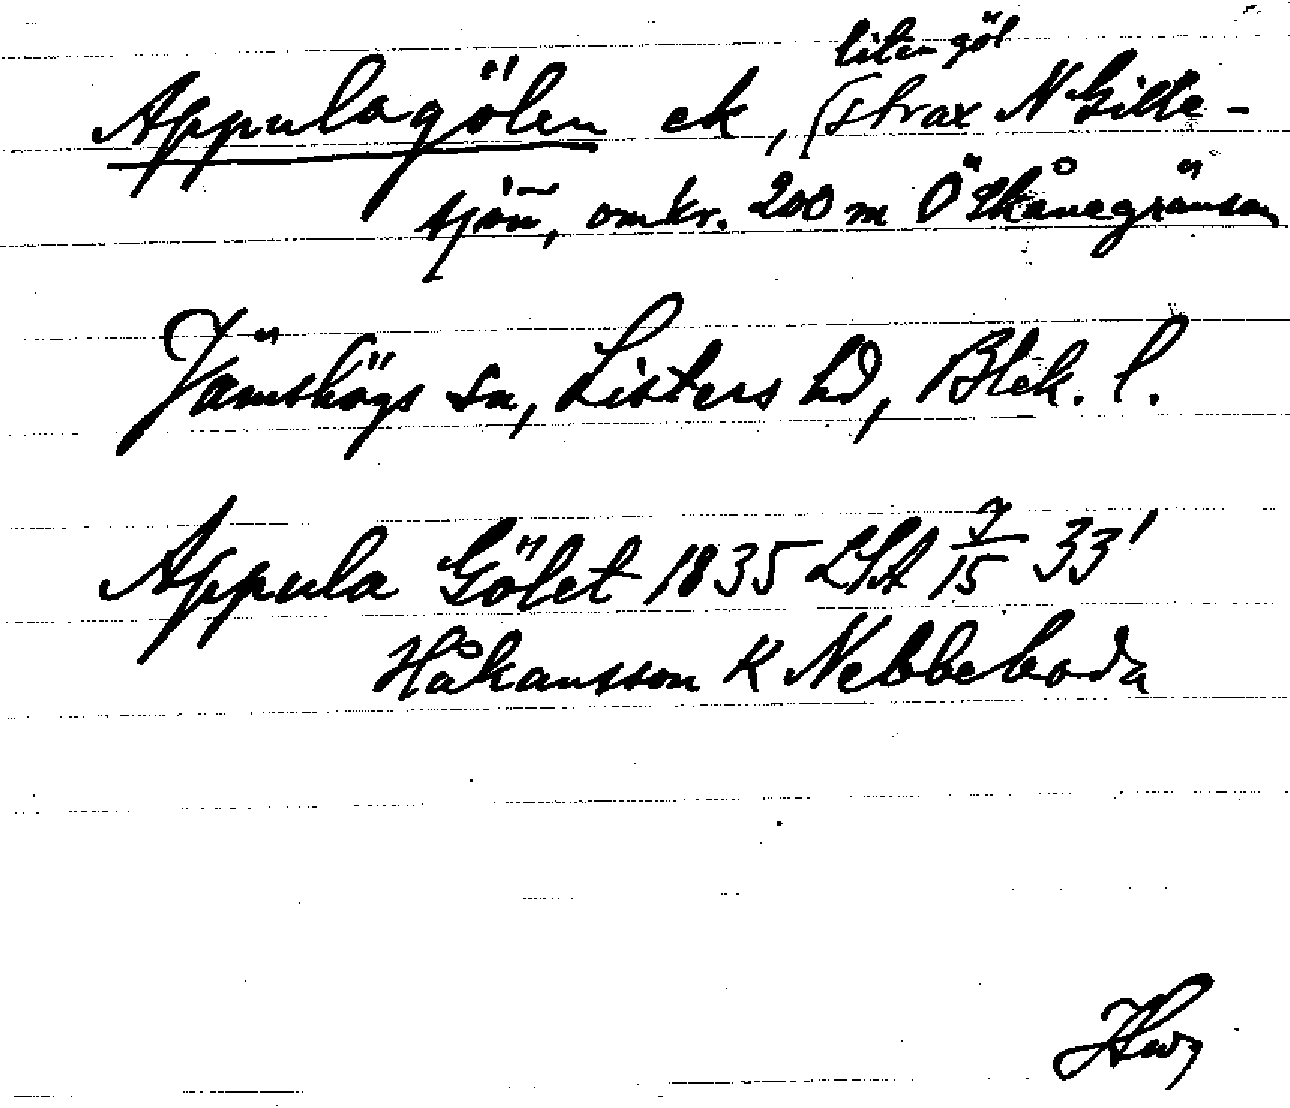 liten göl
Appulagölen ek, strax N Gille-
sjön, omkr. 200 m Ö Skånegränsen
Jämshögs sn, Listers hd, Blek. l.
Appula Gölet 1835 LSA 7/15 33'
Håkansson K Nebbeboda